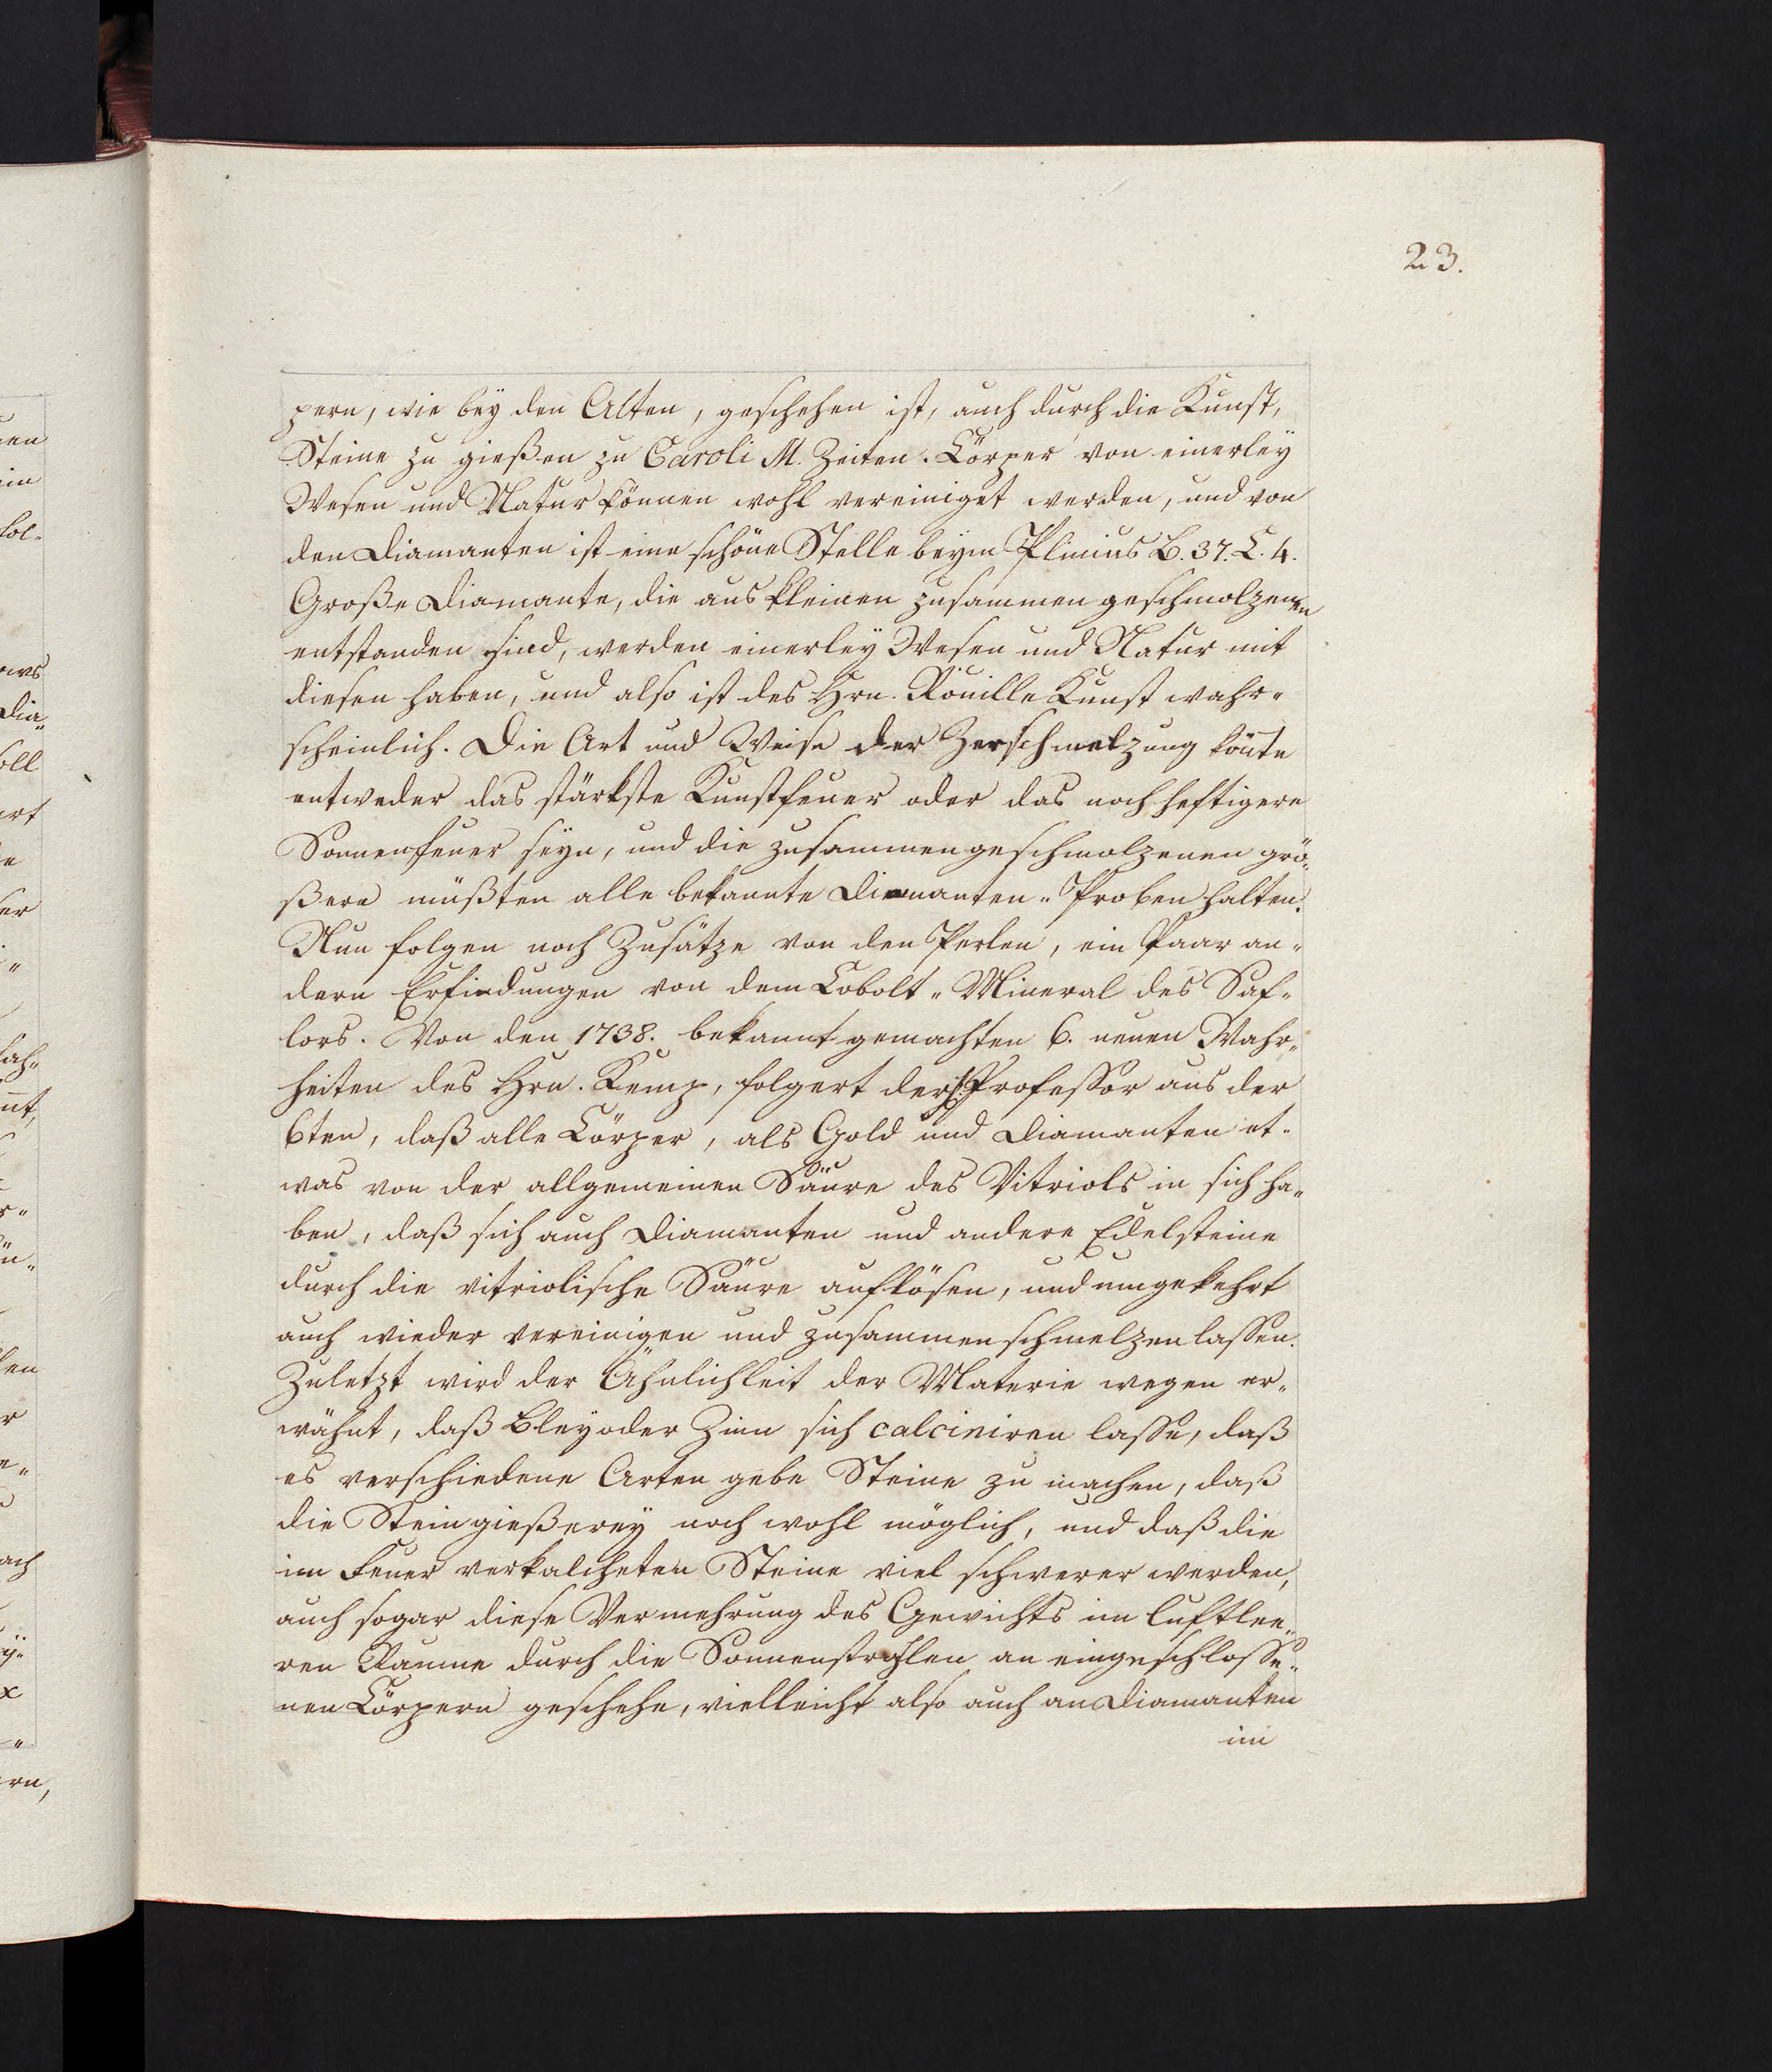 23.
pern, wie bey den Alten, geschehen ist, auch durch die Kunst,
Steine zu gießen zu Caroli M. Zeiten. Cörper von einerley
Wesen und Natur können wohl vereiniget werden, und von
den Diamanten ist eine schöne Stelle beym Plinius B. 37. C. 4.
Große Diamante, die aus kleinen zusammen geschmolzenen
entstanden sind, werden einerley Wesen und Natur mit
diesen haben, und also ist des Hrn. Röuille Kunst wahr-
scheinlich. Die Art und Weise der Zerschmelzung kön̄te
entweder das stärkste Kunstfeuer oder das noch heftigere
Sonnenfeuer seyn, und die zusammengeschmolzenen grö-
ßere müßten alle bekannte Diamanten-Proben halten.
Nun folgen noch Zusätze von den Perlen, ein Paar an-
dern Erfindungen von dem Cobolt-Mineral des Saf-
lors. Von den 1738. bekannt gemachten 6. neuen Wahr-
heiten des Hrn. Kemp, folgert der H. Professor aus der
6ten, daß alle Cörper, als Gold und Diamanten et-
was von der allgemeinen Säure des Vitriols in sich ha-
ben, daß sich auch Diamanten und andere Edelsteine
durch die vitriolische Säure auflösen, und umgekehrt
auch wieder vereinigen und zusammenschmelzen lassen.
Zuletzt wird der Ähnlichkeit der Materie wegen er-
wähnt, daß Bley oder Zinn sich calciniren lasse, daß
es verschiedene Arten gebe Steine zu machen, daß
die Steingießerey noch wohl möglich, und daß die
im Feuer verkalcheten Steine viel schwerer werden,
auch sogar diese Vermehrung des Gewichts im luftlee-
ren Raume durch die Sonnenstrahlen an eingeschlosse-
nen Cörpern geschehe, vielleicht also auch an Diamanten
im